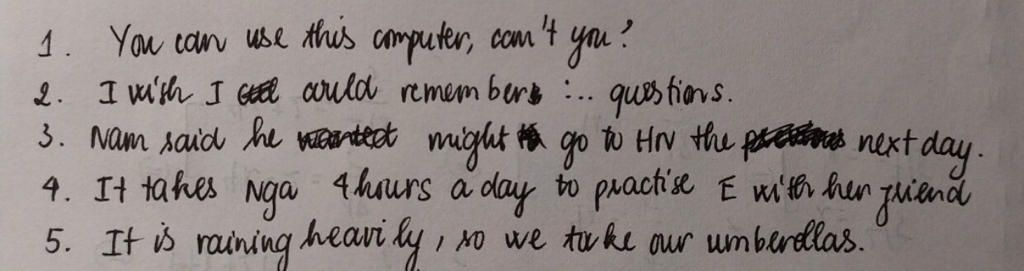 1. You can use this computer, can't you?
2. I wish I could remember :... questions.
3. Nam said he might go to HN the next day.
4. It takes Nga 4 hours a day to practise E with her friend
5. It is raining heavily, so we take our umberellas.